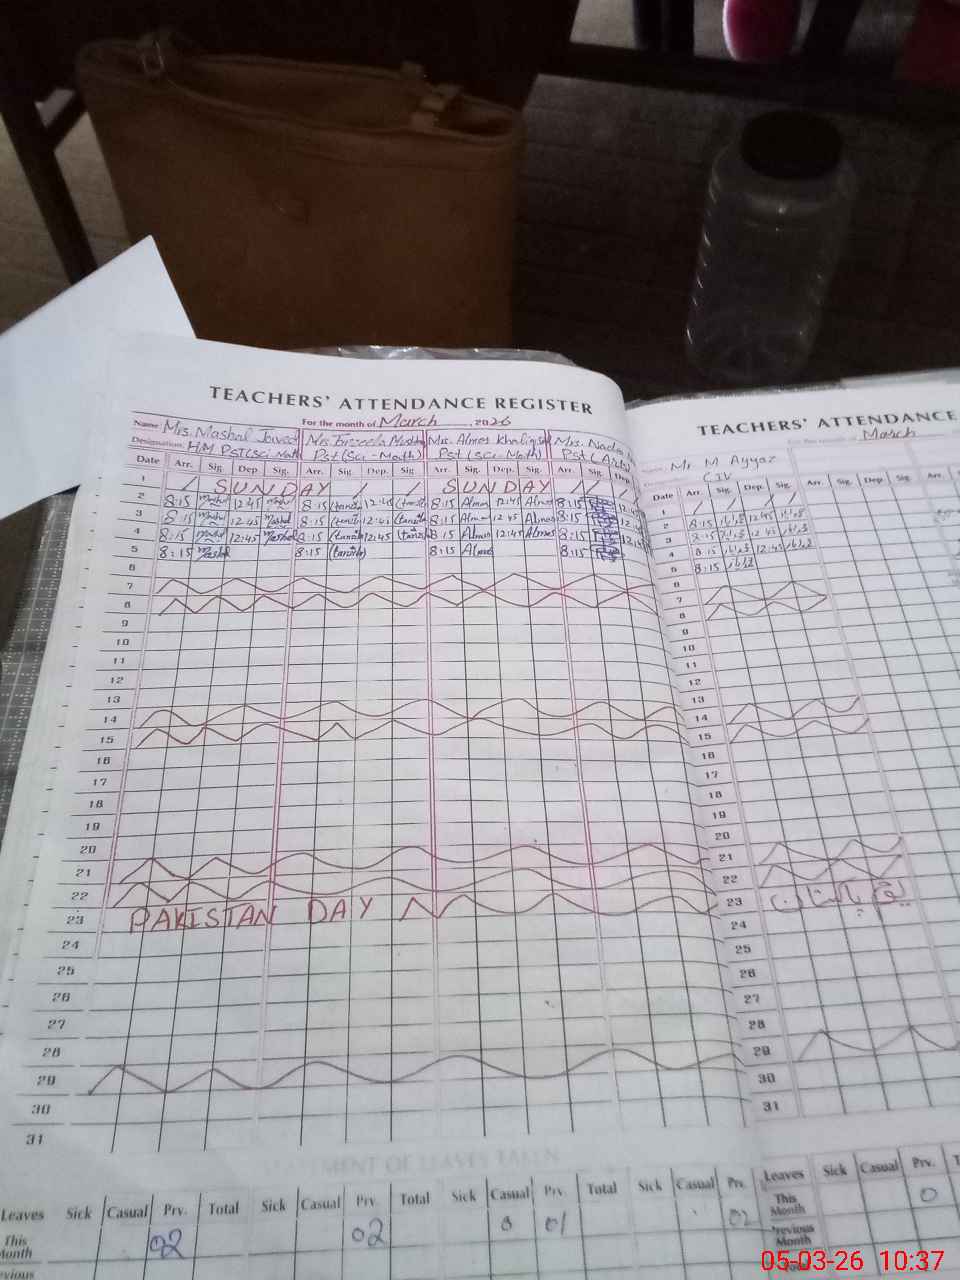 TEACHERS' ATTENDANCE REGISTER
Name Mrs. Mashal Javed For the month of March, 2026
Mrs. Almas Khaliq Mrs.
Designation: HM PST(Sci-Math) Pst (Sci-Math) Pst (Sci-Math) Pst (Arts)
Date Arr. Sig. Dep. Sig. Arr. Sig. Dep. Sig. Arr. Sig. Dep. Sig. Arr. Sig. Dep.
1 SUNDAY SUNDAY
2 8:15 Mashal 12:45 Mashal 8:15 Tanzila 12:45 8:15 Almas 12:45 Almas 8:15
3 8:15 Mashal 12:45 Mashal 8:15 Tanzila 12:45 8:15 Almas 12:45 Almas 8:15
4 8:15 Mashal 12:45 Mashal 8:15 Tanzila 12:45 8:15 Almas 12:45 Almas 8:15
5 8:15 Mashal 8:15 Tanzila 8:15 Almas 8:15
6
7
8
9
10
11
12
13
14
15
16
17
18
19
20
21
22
23 PAKISTAN DAY
24
25
26
27
28
29
30
31
STATEMENT OF LEAVES TAKEN
Leaves Sick Casual Prv. Total Sick Casual Prv. Total Sick Casual Prv. Total Sick Casual Prv.
This Month 02 02 0 01 02
TEACHERS' ATTENDANCE
For the month of March
Name Mr M Ayyaz
CIV
Date Arr. Sig. Dep. Sig. Arr. Sig. Dep. Sig. Arr.
1
2 8:15 12:45
3 8:15 12:45
4 8:15 12:45
5 8:15
6
7
8
9
10
11
12
13
14
15
16
17
18
19
20
21
22
23 یوم پاکستان
24
25
26
27
28
29
30
31
Leaves Sick Casual Prv.
This Month 0
Previous Month
Total
05-03-26 10:37